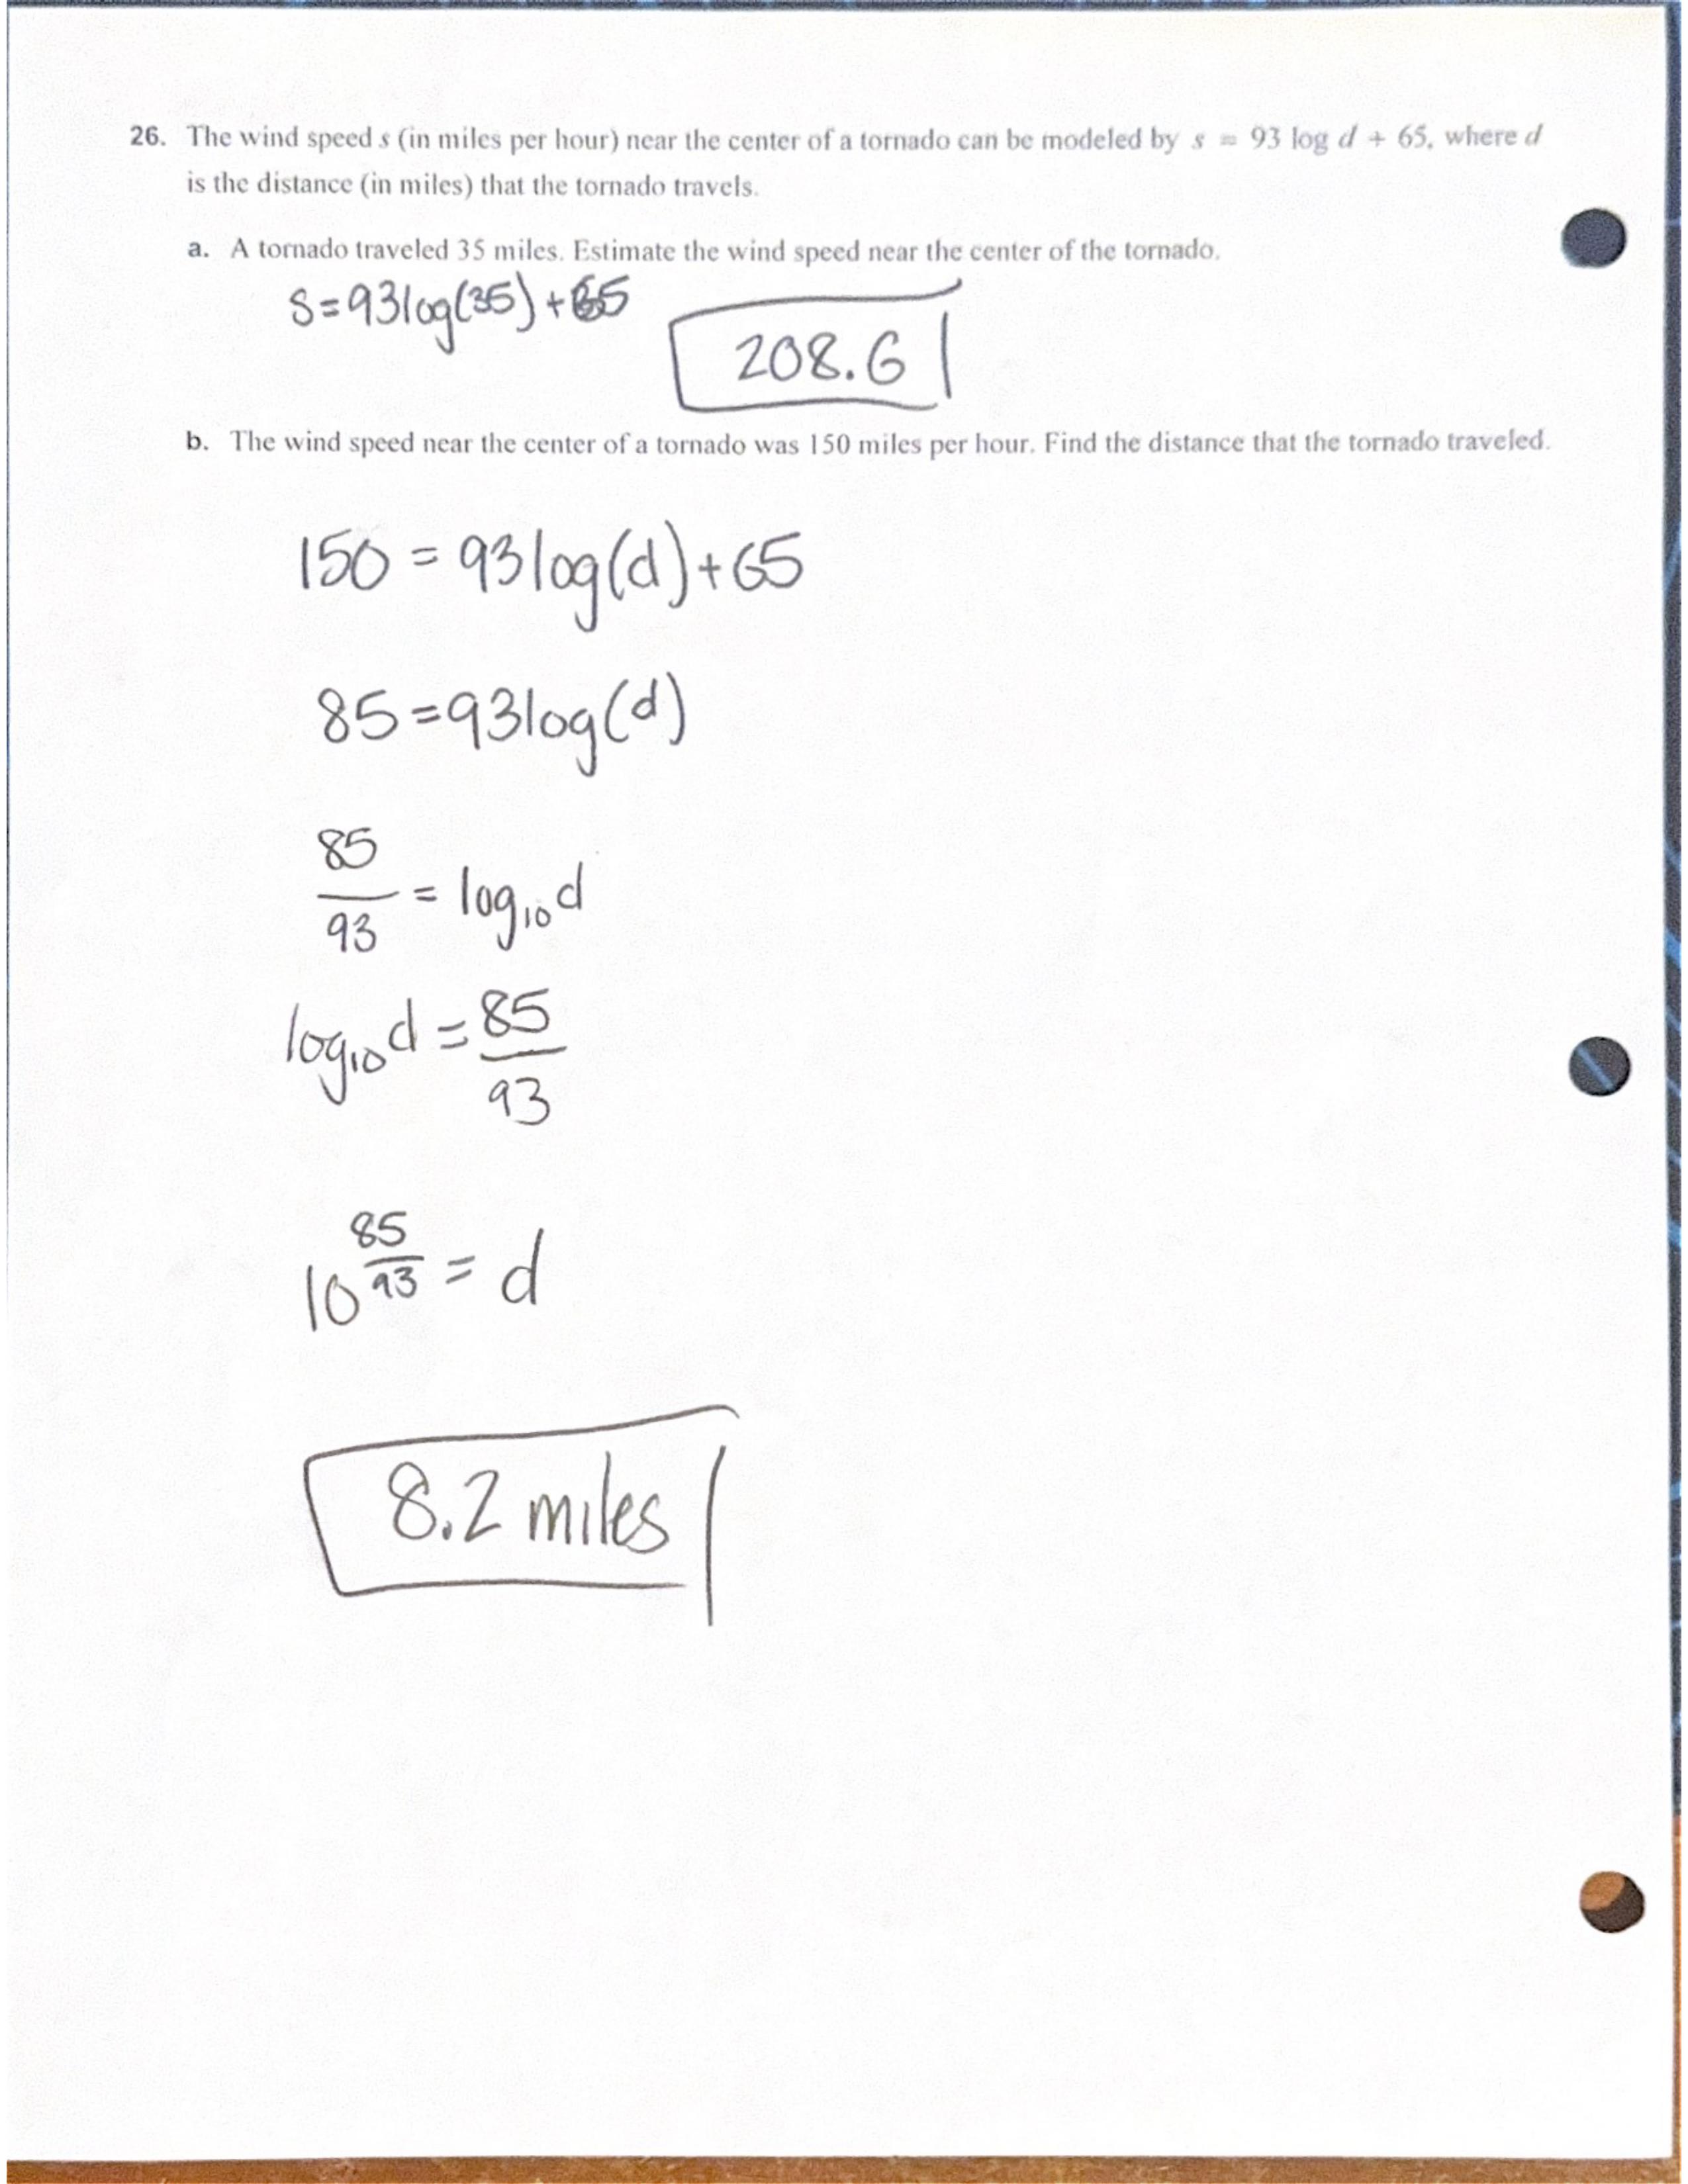 26. The wind speed s (in miles per hour) near the center of a tornado can be modeled by s = 93 log d + 65, where d
is the distance (in miles) that the tornado travels.
a. A tornado traveled 35 miles. Estimate the wind speed near the center of the tornado.
S=93log(35)+65
208.6
b. The wind speed near the center of a tornado was 150 miles per hour. Find the distance that the tornado traveled.
150 = 93log(d)+65
85=93log(d)
85/93 = log₁₀d
log₁₀d = 85/93
10^(85/93) = d
8.2 miles